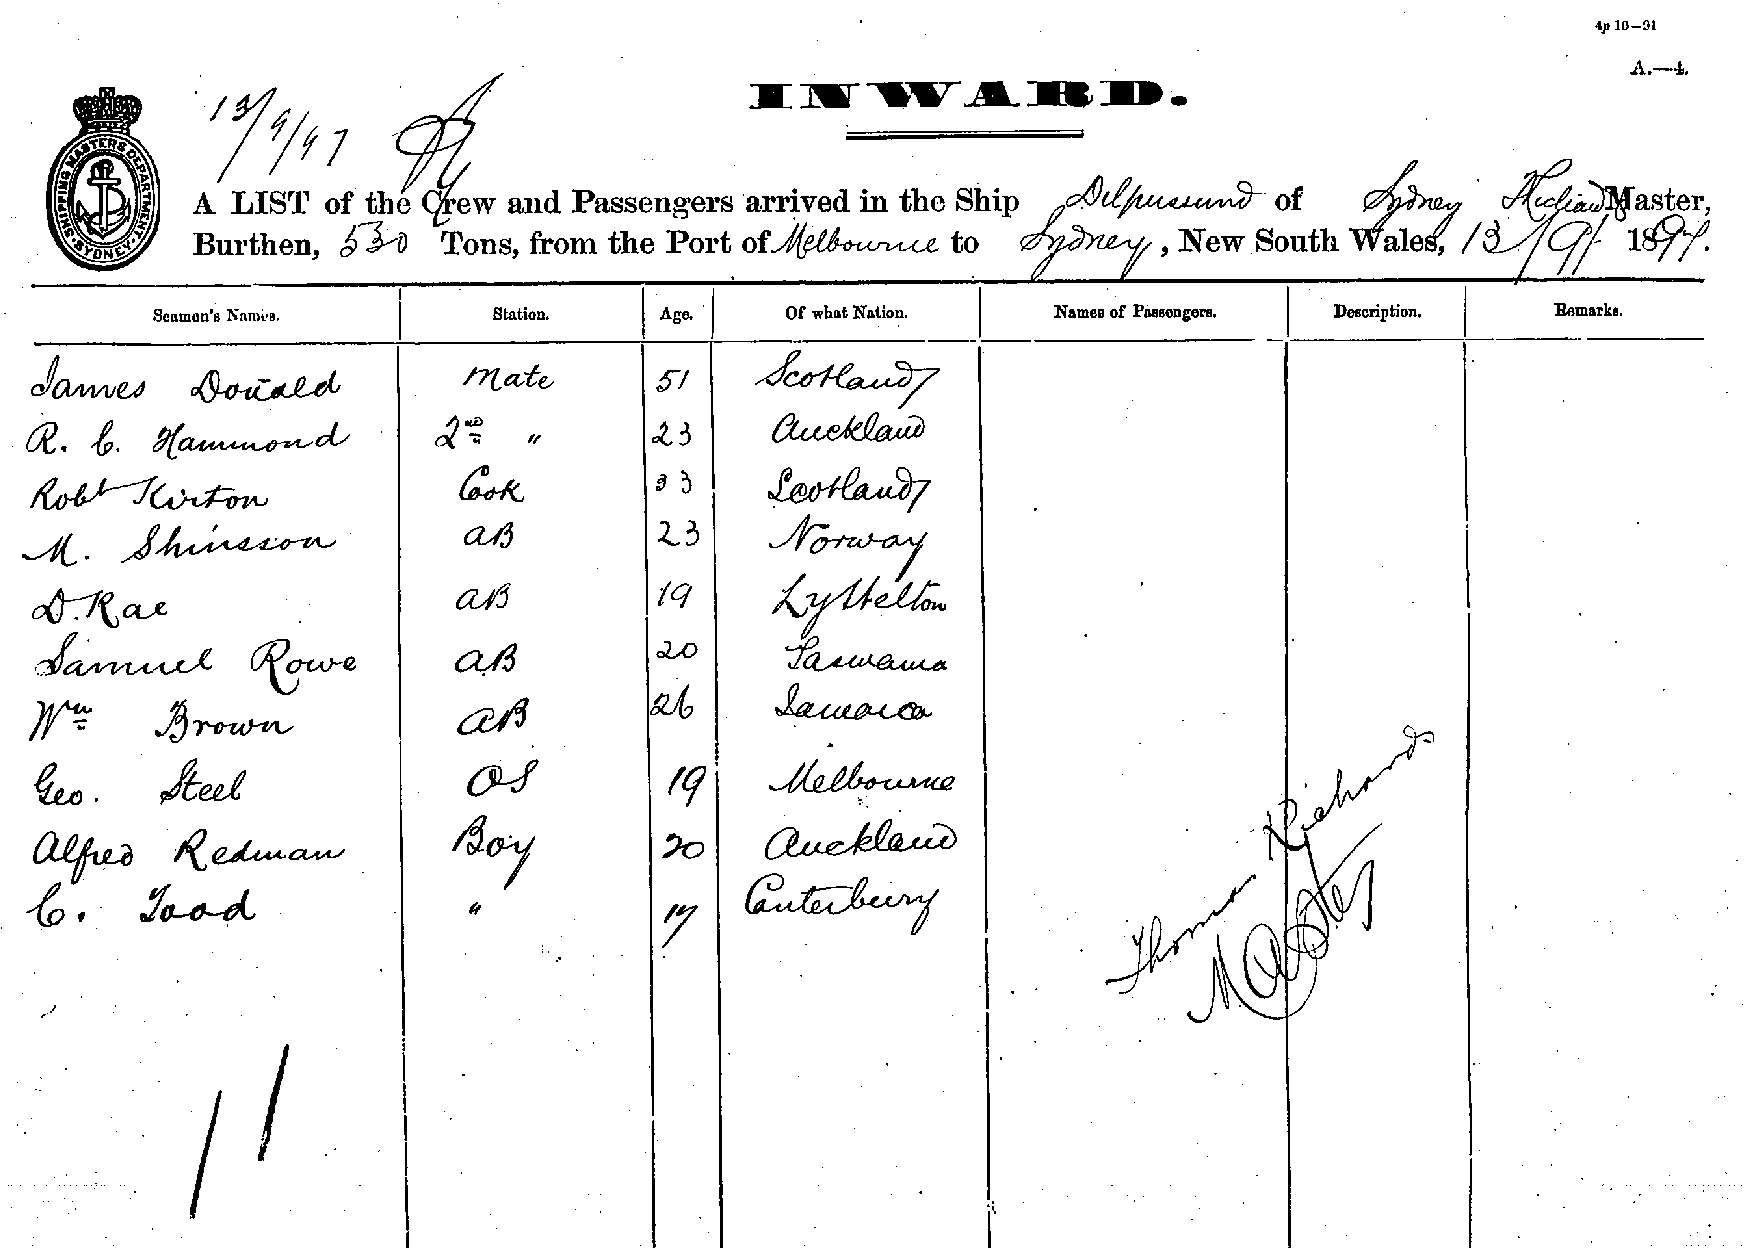 4p 10–91
A.—4.
13/9/97
INWARD.
SHIPPING MASTERS DEPARTMENT. SYDNEY
A LIST of the Crew and Passengers arrived in the Ship of Sydney Master,
Burthen, 530 Tons, from the Port of Melbourne to Sydney, New South Wales, 13/9/ 1897.
Seamen's Names. Station. Age. Of what Nation. Names of Passengers. Description. Remarks.
James Donald Mate 51 Scotland
R. C. Hammond 2nd " 23 Auckland
Robt Kirton Cook 33 Scotland
M. Shinsson AB 23 Norway
D. Rae AB 19 Lyttelton
Samuel Rowe AB 20 Tasmania
Wm Brown AB 26 Jamaica
Geo. Steel OS 19 Melbourne
Alfred Redman Boy 20 Auckland
C. Todd " 17 Canterbury
Thomas Richards
Master
11